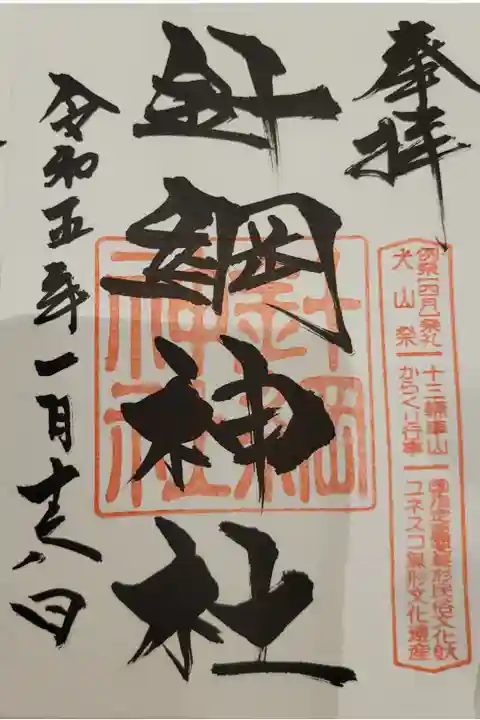 奉拝
例祭(四月)発礼
犬山祭
十三輛車山
からくり行事
国指定重要無形民俗文化財
ユネスコ無形文化遺産
針綱神社
針綱
神社
令和五年一月十八日